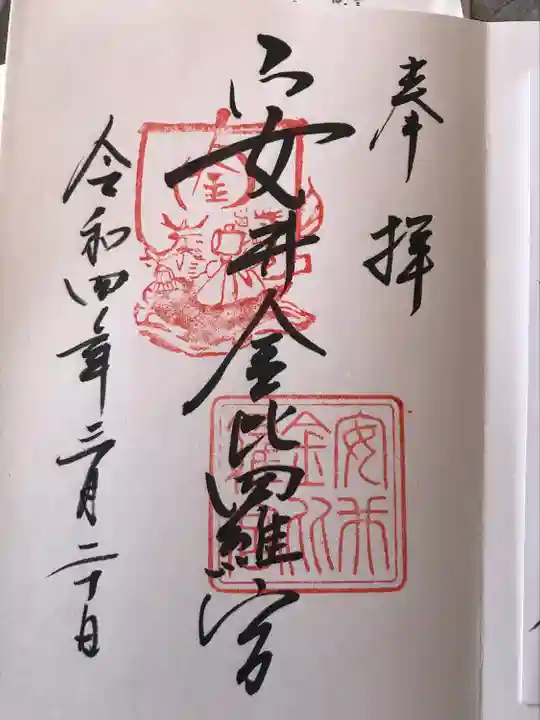 奉拝
安井金比羅宮
令和四年三月二十日
金
安井金比羅宮